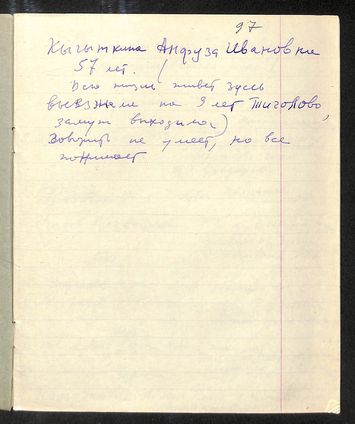 97
Кыгыткина Анфуза Ивановна
57 лет. (
Всю жизнь живет здесь
выезжала на 9 лет Тиголово,
замуж выходила.)
Говорить не умеет, но все
понимает